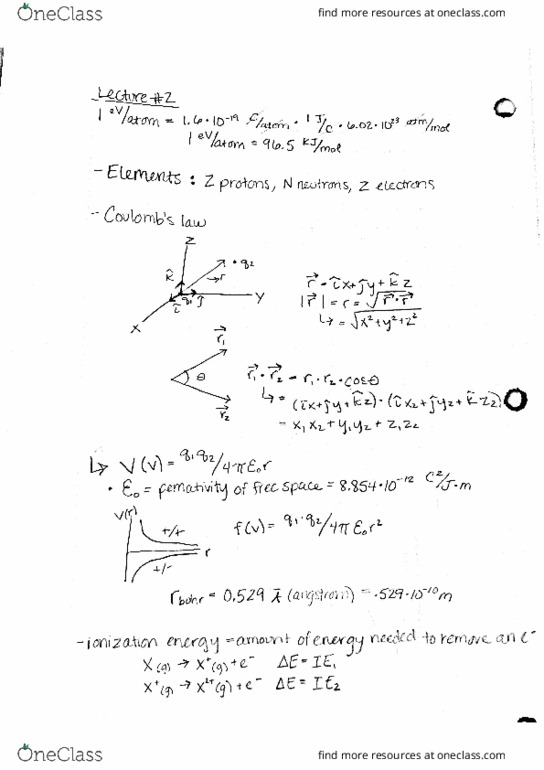 OneClass
find more resources at oneclass.com
Lecture #2
1 eV/atom = 1.6·10⁻¹⁹ C/atom · 1 J/C · 6.02·10²³ atm/mol
1 eV/atom = 96.5 kJ/mol
- Elements : Z protons, N neutrons, Z electrons
- Coulomb's law
Z
k̂
q₂
r
q₁
î
ĵ
Y
X
r⃗ = îx+ĵy+k̂z
|r⃗| = r = √r⃗·r⃗
↳ = √x²+y²+z²
r⃗₁
θ
r⃗₂
r⃗₁·r⃗₂ = r₁·r₂·cosθ
↳ = (îx+ĵy+k̂z)·(îx₂+ĵy₂+k̂z₂)
= x₁x₂+y₁y₂+z₁z₂
↳ V(v) = q₁q₂/4πε₀r
• ε₀ = pemativity of free space = 8.854·10⁻¹² C²/J·m
V(r)
+/+
+/-
r
f(v) = q₁·q₂/4πε₀r²
r bohr = 0.529 Å (angstrom) = .529·10⁻¹⁰ m
- ionization energy = amount of energy needed to remove an e⁻
X(g) → X⁺(g) + e⁻ ΔE = IE₁
X⁺(g) → X²⁺(g) + e⁻ ΔE = IE₂
OneClass
find more resources at oneclass.com